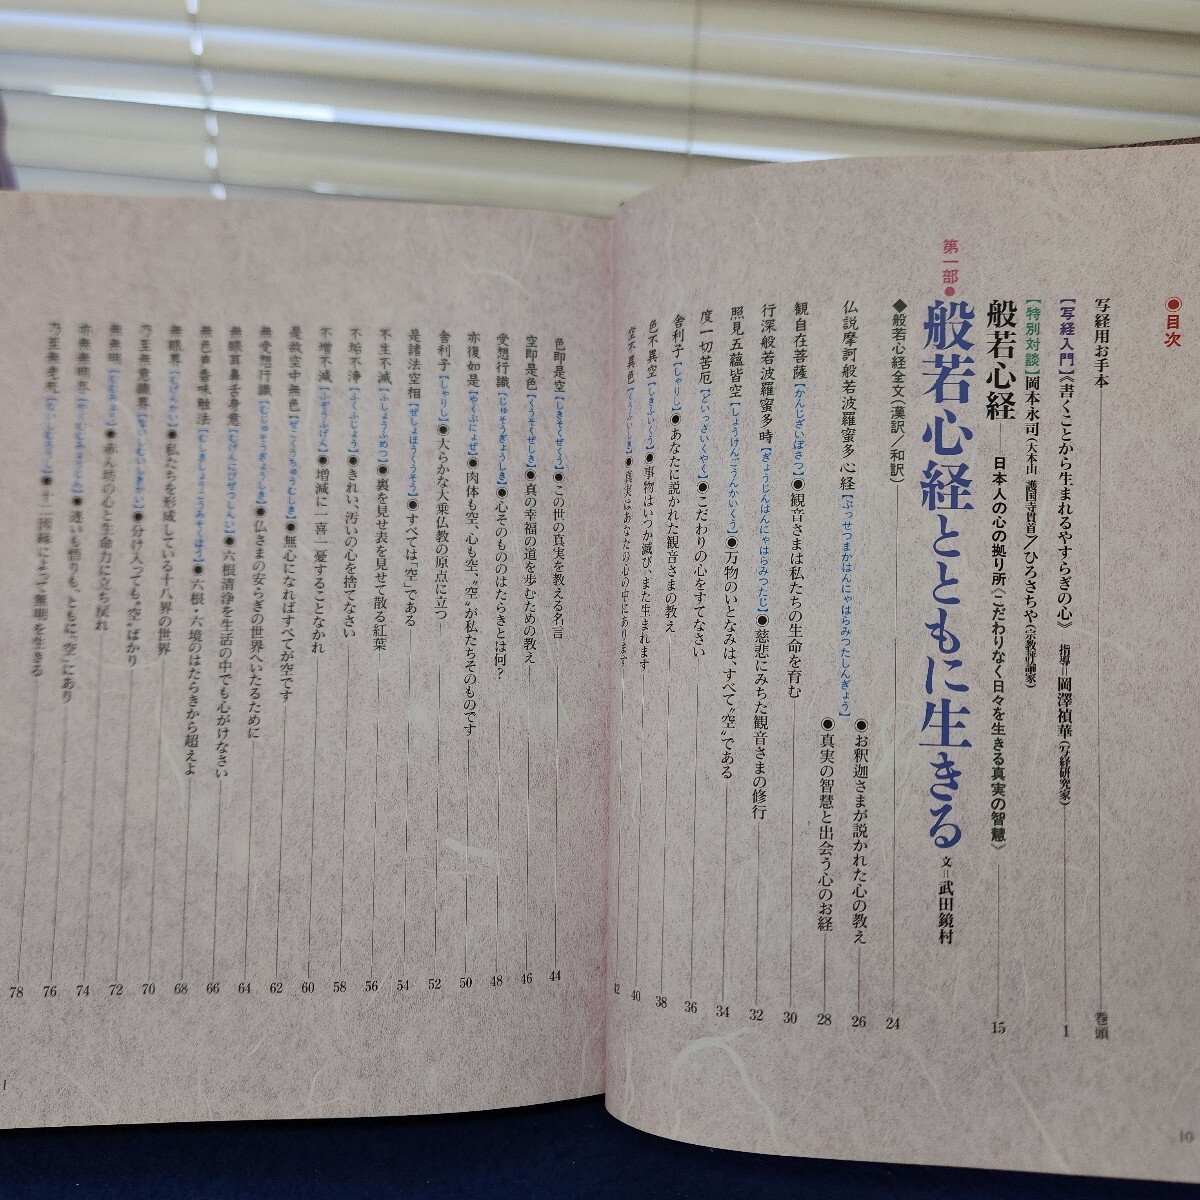 ●目次
写経用お手本 巻頭
【写経入門】《書くことから生まれるやすらぎの心》 指導=岡澤禎華(写経研究家) 1
【特別対談】岡本永司(大本山 護国寺貫首)/ひろさちや(宗教評論家)
般若心経 日本人の心の拠り所〈こだわりなく日々を生きる真実の智慧〉 15
第一部●般若心経とともに生きる 文=武田鏡村
◆般若心経全文(漢訳/和訳) 24
仏説摩訶般若波羅蜜多心経【ぶっせつまかはんにゃはらみつたしんぎょう】●お釈迦さまが説かれた心の教え 26
●真実の智慧と出会う心のお経 28
観自在菩薩【かんじざいぼさつ】●観音さまは私たちの生命を育む 30
行深般若波羅蜜多時【ぎょうじんはんにゃはらみつたじ】●慈悲にみちた観音さまの修行 32
照見五蘊皆空【しょうけんごうんかいくう】●万物のいとなみは、すべて“空”である 34
度一切苦厄【どいっさいくやく】●こだわりの心をすてなさい 36
舎利子【しゃりし】●あなたに説かれた観音さまの教え 38
色不異空【しきふいくう】●事物はいつか滅び、また生まれます 40
空不異色【くうふいしき】●真実はあなたの心の中にあります 42
色即是空【しきそくぜくう】●この世の真実を教える名言 44
空即是色【くうそくぜしき】●真の幸福の道を歩むための教え 46
受想行識【じゅそうぎょうしき】●心そのもののはたらきとは何? 48
亦復如是【やくぶにょぜ】●肉体も空、心も空、“空”が私たちそのものです 50
舎利子【しゃりし】●大らかな大乗仏教の原点に立つ 52
是諸法空相【ぜしょほうくうそう】●すべては「空」である 54
不生不滅【ふしょうふめつ】●裏を見せ表を見せて散る紅葉 56
不垢不浄【ふくふじょう】●きれい、汚いの心を捨てなさい 58
不増不減【ふぞうふげん】●増減に一喜一憂することなかれ 60
是故空中無色【ぜこくうちゅうむしき】●無心になればすべてが空です 62
無受想行識【むじゅそうぎょうしき】●仏さまの安らぎの世界へいたるために 64
無眼耳鼻舌身意【むげんにびぜっしんい】●六根清浄を生活の中でも心がけなさい 66
無色声香味触法【むしきしょうこうみそくほう】●六根・六境のはたらきから超えよ 68
無眼界【むげんかい】●私たちを形成している十八界の世界
乃至無意識界【ないしむいしきかい】●分け入っても“空”ばかり 70
無無明【むむみょう】●赤ん坊の心と生命力に立ち戻れ 72
亦無無明尽【やくむむみょうじん】●迷いも悟りも、ともに“空”にあり 74
乃至無老死【ないしむろうし】●十二因縁によって無明を生きる 76
78
10